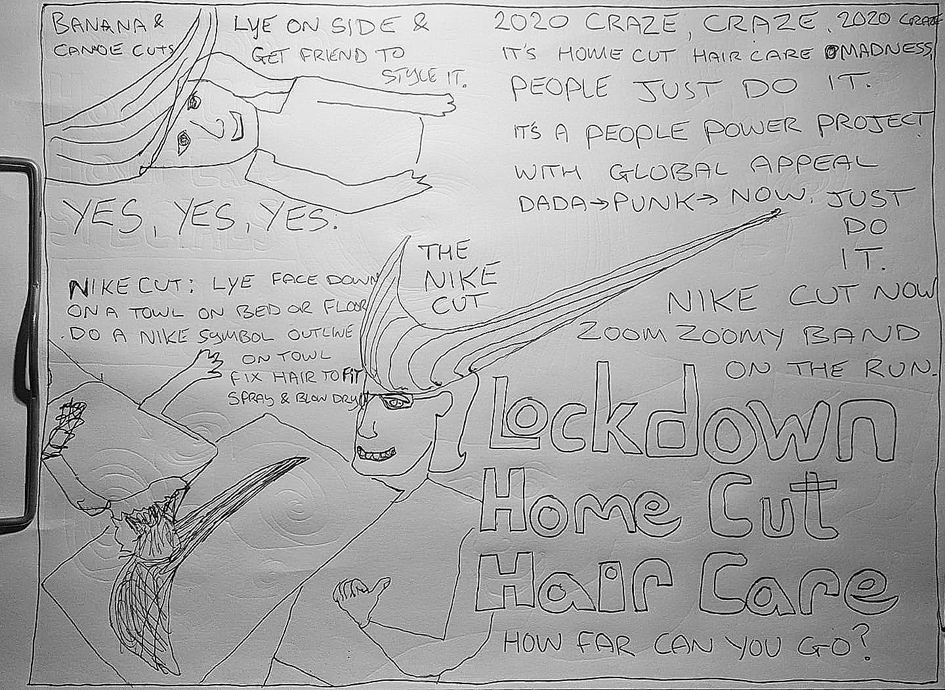 BANANA &
CANOE CUTS
LYE ON SIDE &
GET FRIEND TO
STYLE IT.
YES, YES, YES.
2020 CRAZE, CRAZE. 2020 CRAZE
IT'S HOME CUT HAIR CARE MADNESS,
PEOPLE JUST DO IT.
IT'S A PEOPLE POWER PROJECT
WITH GLOBAL APPEAL
DADA→PUNK→NOW. JUST
DO
IT.
THE
NIKE
CUT
NIKE CUT NOW
ZOOM ZOOMY BAND
ON THE RUN.
NIKE CUT: LYE FACE DOWN
ON A TOWL ON BED OR FLOOR
.DO A NIKE SYMBOL OUTLINE
ON TOWL
FIX HAIR TO FIT
SPRAY & BLOW DRY
Lockdown
Home Cut
Hair Care
HOW FAR CAN YOU GO?